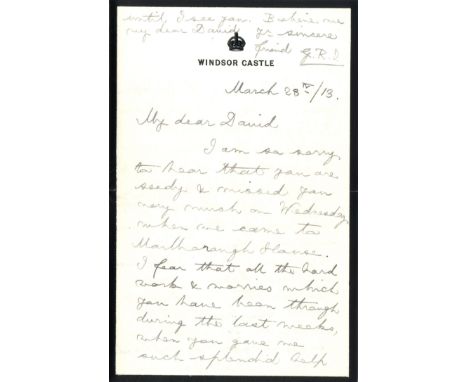 until I see you. Believe me
my dear David yr sincere
friend G.R.I.
WINDSOR CASTLE
March 28th/13.
My dear David
I am so sorry
to hear that you are
seedy & missed you
very much on Wednesday
when we came to
Marlborough House.
I fear that all the hard
work & worries which
you have been through
during the last weeks,
when you gave me
such splendid help